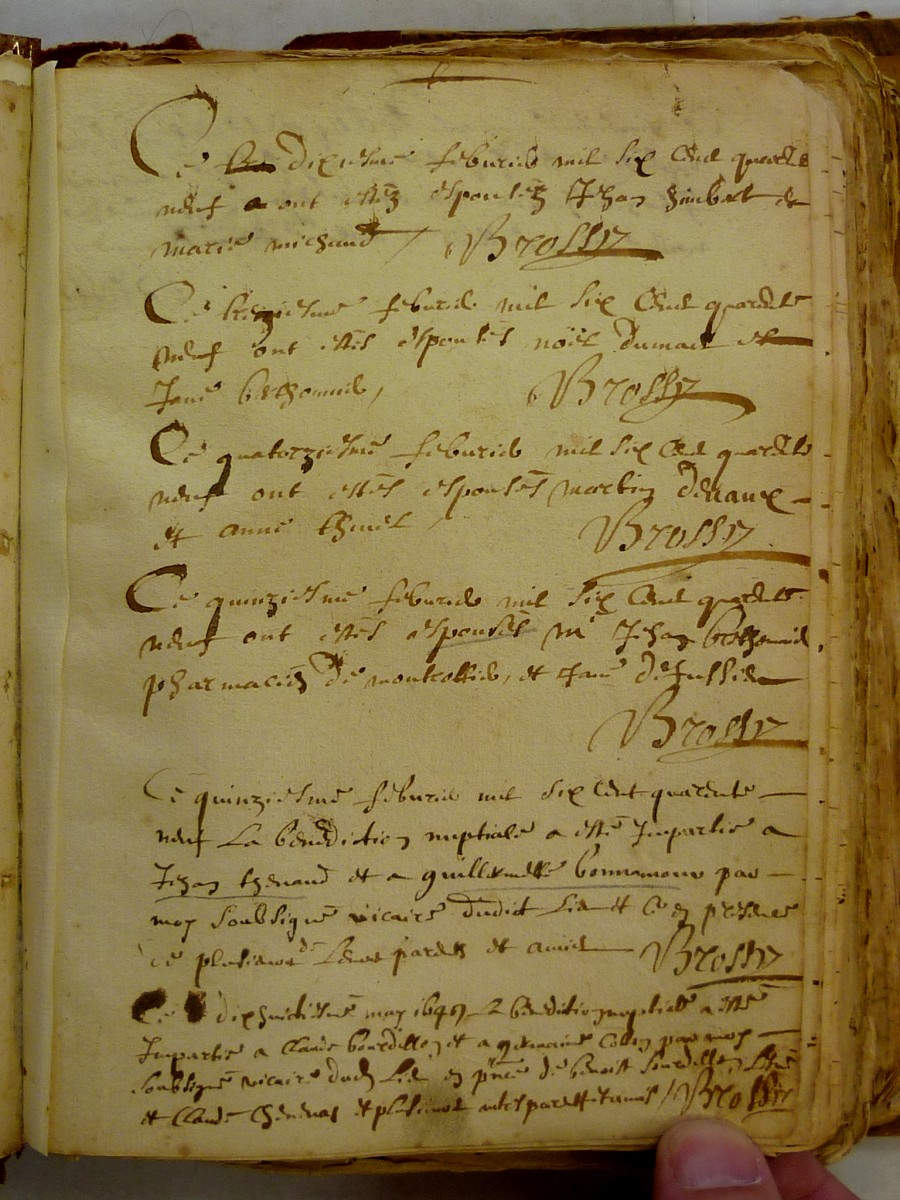 Ce dixiesme febvrier mil six cent quarente
neuf ont estez espousez Jehan et
marie michaud / Brossy
Ce treziesme febvrier mil six cent quarente
neuf ont estes espousés noël dumas et
Jane berthomier, Brossy
Ce quatorziesme febvrier mil six cent quarente
neuf ont estes espousés martin devaux
et anne Brossy
Ce quinziesme febvrier mil six cent quarente
neuf ont estes espousés Mr Jehan berthomier
pharmacien de montrottier, et Jane
Brossy
Ce quinziesme febvrier mil six cent quarente
neuf La benediction nuptiale a esté Impartie a
Jehan thenaud et a guillermette bonnamour par
moy soubsigné vicaire dudict Lieu et ce en presence
de plusieurs de Leurs parents et amis Brossy
Ce dixhuictiesme may 1649 La benediction nuptiale a esté
Impartie a Claude bourdillon et a germaine par moy
soubsigné vicaire dud Lieu en pñce de benoist
et Claude et plusieurs autres parents et amis / Brossy